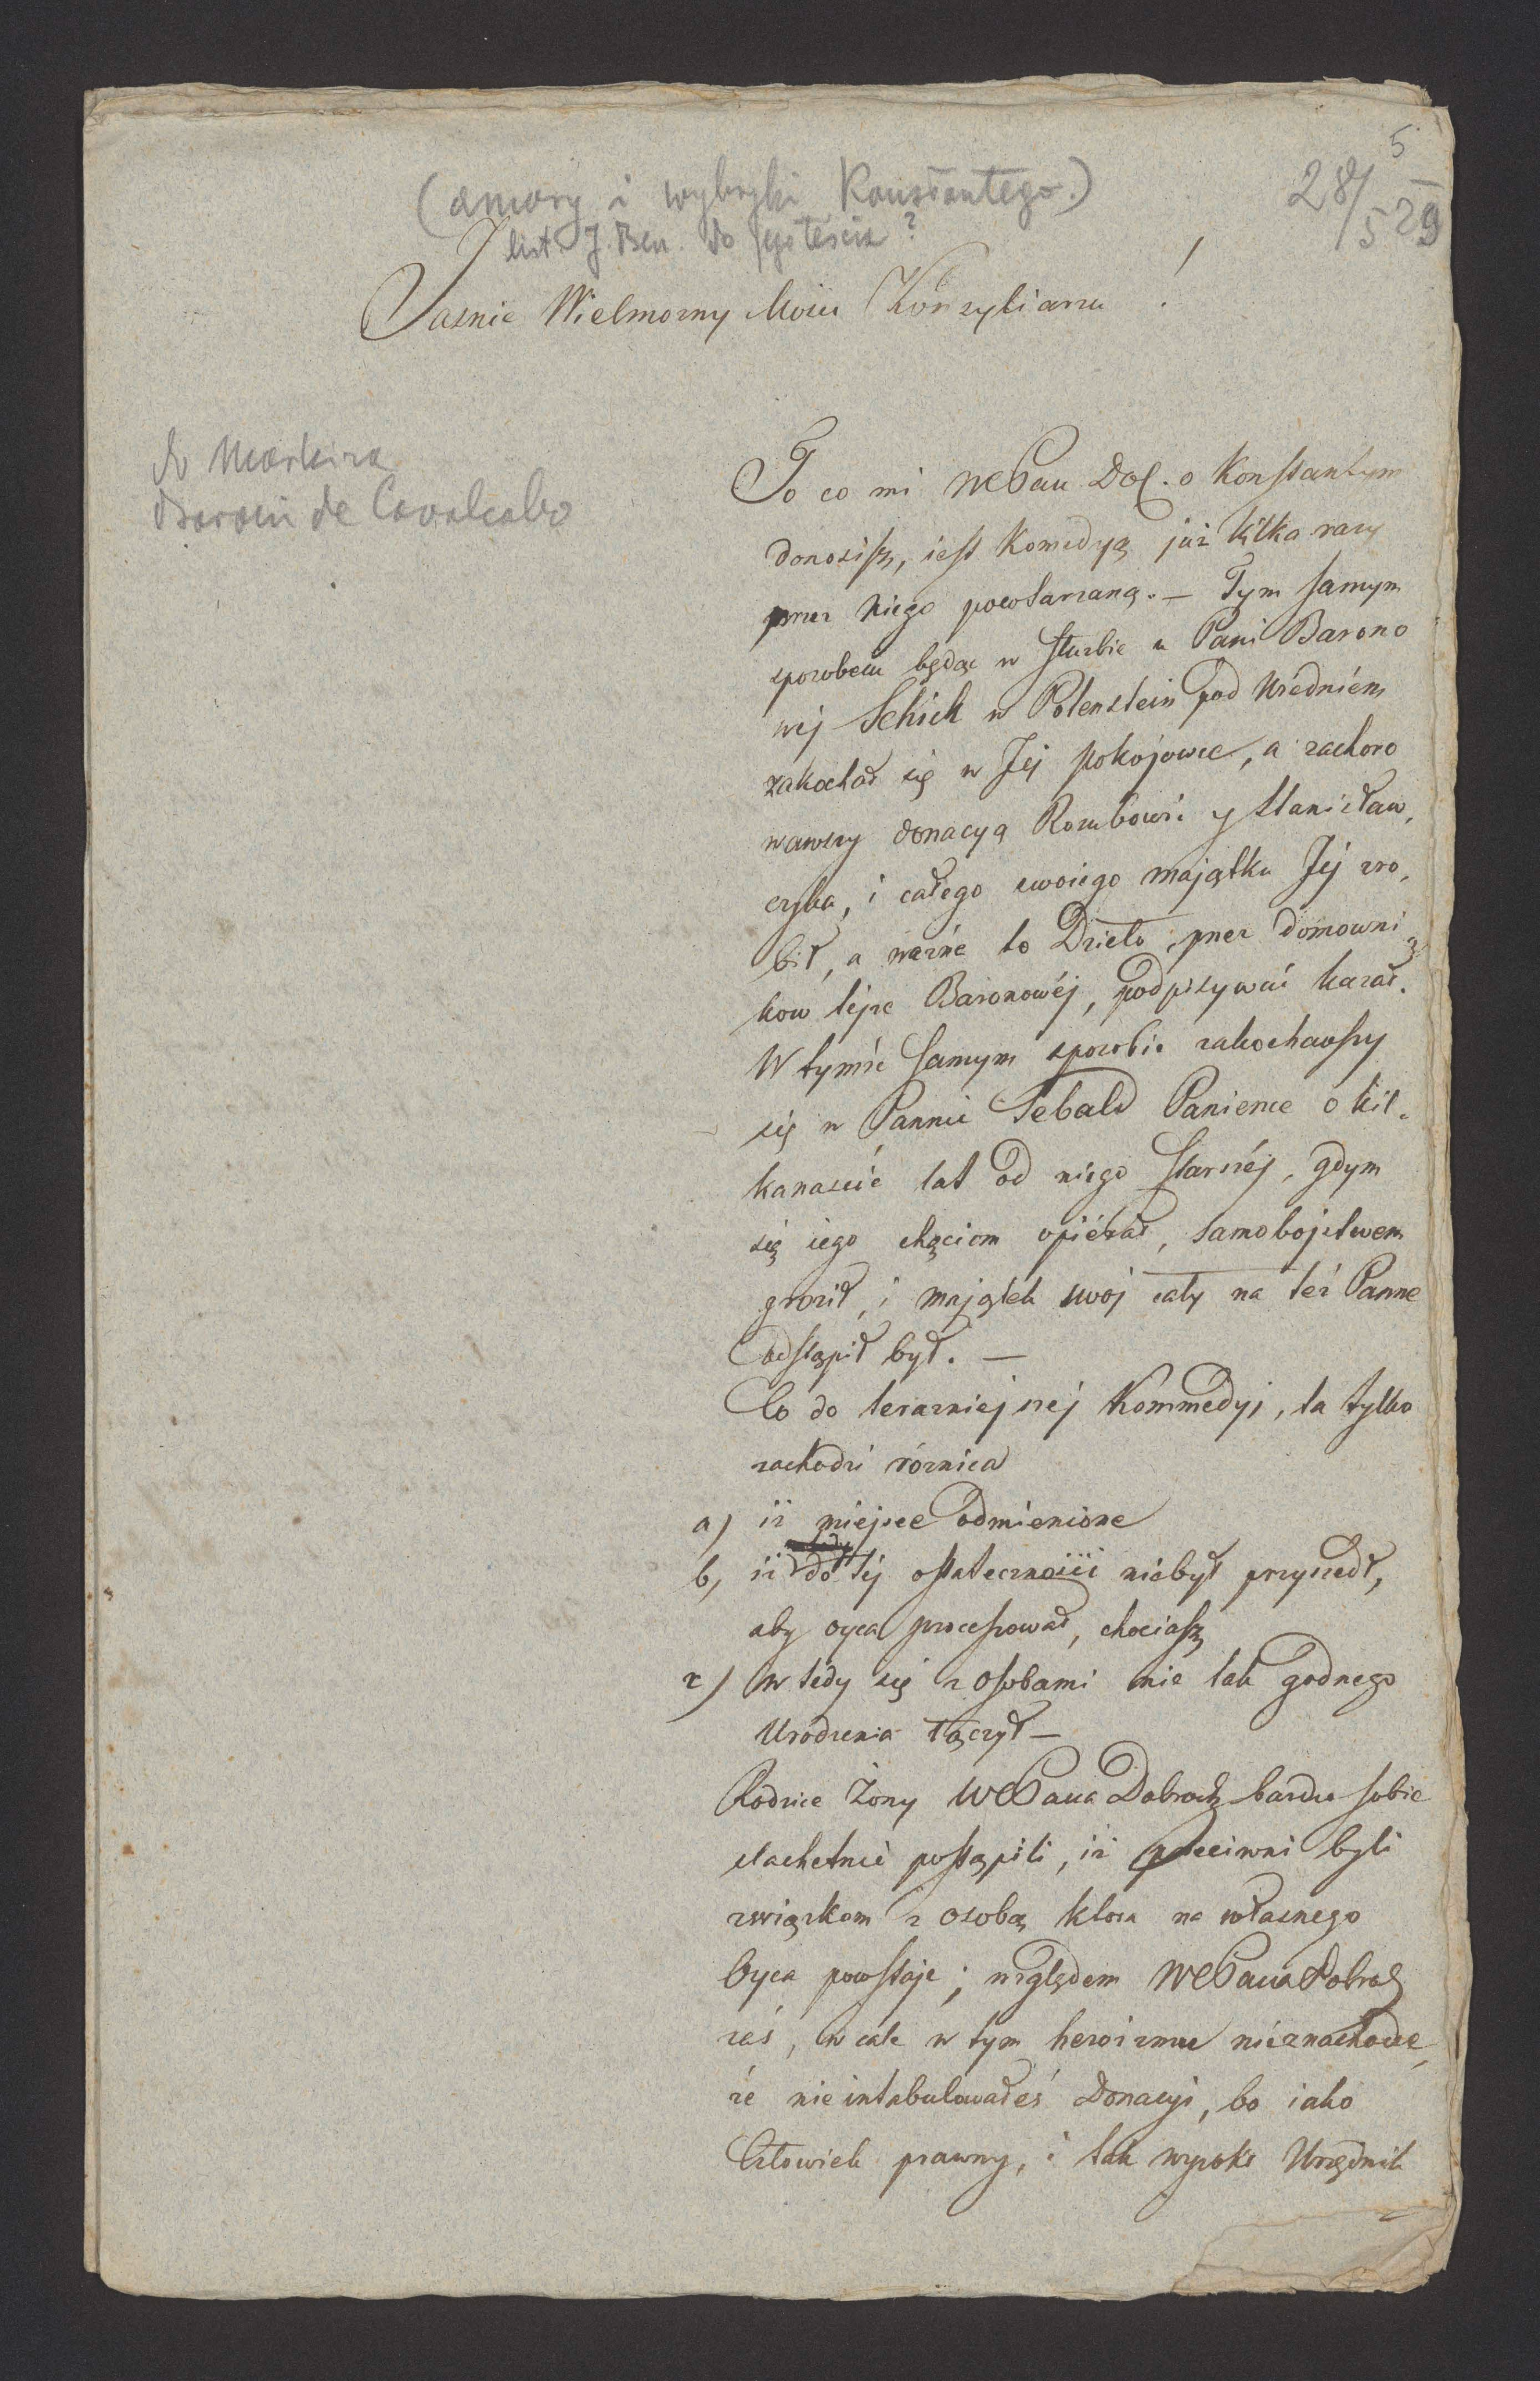 5
28/5 29
(amory i wybryki Konstantego.)
list J. Ben. do jego teścia?
Jasnie Wielmozny Mosci Konsyliarzu !
do Markiza
Baroni de Cavalcabo
To co mi WCPan Dob. o Konstantym
donosisz, iest Komedyą już kilka razy
przez niego powtarzaną. — Tym samym
sposobem będąc w służbie u Pani Barono
wej Schick w Potenstein pod Wiedniem
zakochał się w Jej pokojowce, a zachoro
wawszy donacyą Rozubowic y Stanisław,
czyka, i całego swoiego majątku Jej zro,
bił, a ważne to Dzieło, przez domowni
kow tejze Baronowéj, podpisywać kazał.
W tymże samym sposobie zakochawszy
się w Pannie Tebald Panience o kil-
kanascie lat od niego starszéj, gdym
się iego chęciom opiérał, samobojstwem
groził, i majątek swój cały na też Panne
odstąpił był. —
Co do terazniejszéj Kommedyi, ta tylko
zachodzi róznica
a) iż miejsce odmienione
b, iż do tej ostateczności niebył przyszedł,
aby oyca processował, chociasz
c) wtedy się z osobami nie tak godnego
Urodzenia łączył —
Rodzice Żony WCPana Dobrodz bardzo sobie
slachetnie postąpili, iż przeciwni byli
związkom z osobą ktora na własnego
Oyca powstaje; względem WCPana Dobrodz
zaś, wcale w tym heroizmu nieznachodzę
że nie intabulowałeś Donacyi, bo iako
Człowiek prawny, i tak wysoki Urzędnik